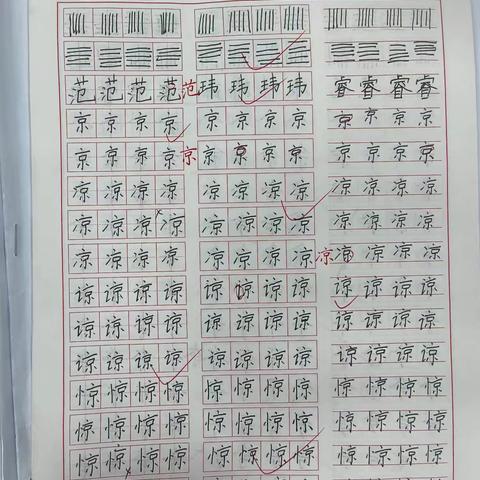 范范范范范玮玮玮玮睿睿睿睿
京京京京京京京京京京京京
京京京京京京京京京京京京京
凉凉凉凉凉凉凉凉凉凉凉凉
凉凉凉凉凉凉凉凉凉凉凉凉
凉凉凉凉凉凉凉凉凉凉凉凉凉
谅谅谅谅谅谅谅谅谅谅谅谅
谅谅谅谅谅谅谅谅谅谅谅谅
谅谅谅谅谅谅谅谅谅谅谅谅
惊惊惊惊惊惊惊惊惊惊惊惊
惊惊惊惊惊惊惊惊惊惊惊惊
惊惊惊惊惊惊惊惊惊惊惊惊